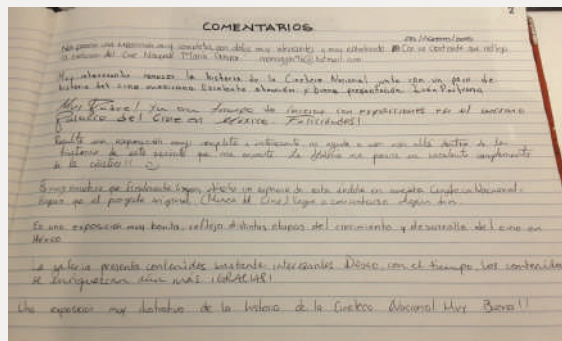 2
COMENTARIOS
Me pareció una exposición muy completa con datos muy relevantes y muy Con un contraste que refleja
la evolución del Cine Nacional María
Muy interesante conocer la historia de la Cineteca Nacional junto con un poco de
historia del cine mexicano. Excelente atención y buena presentación. Iván Pastrana
Muy Padre! Ya era tiempo de iniciar con exposiciones en el máximo
Palacio del Cine en México Felicidades!
Resulta una exposición muy completa e interesante
historia de este recinto que me encanta me parece un excelente complemento
a la visita!!!
Es muy emotivo que finalmente hayan abierto un espacio de esta índole en nuestra Cineteca Nacional.
Espero que el proyecto original (Museo del Cine) llegue a concretarse algún día.
Es una exposición muy bonita, reflejo distintas etapas del crecimiento y desarrollo del cine en
México
La galería presenta contenidos bastante interesantes. Deseo, con el tiempo, los contenidos
se enriquezcan aún más ¡GRACIAS!
Una exposición muy de la historia de la Cineteca Nacional Muy Buena!!